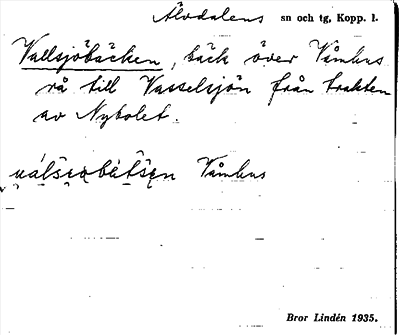 Älvdalens sn och tg, Kopp. l.
Vallsjöbäcken, bäck över Våmhus
rå till Vasselsjön från trakten
av Nybolet.
Våmhus
Bror Lindén 1935.